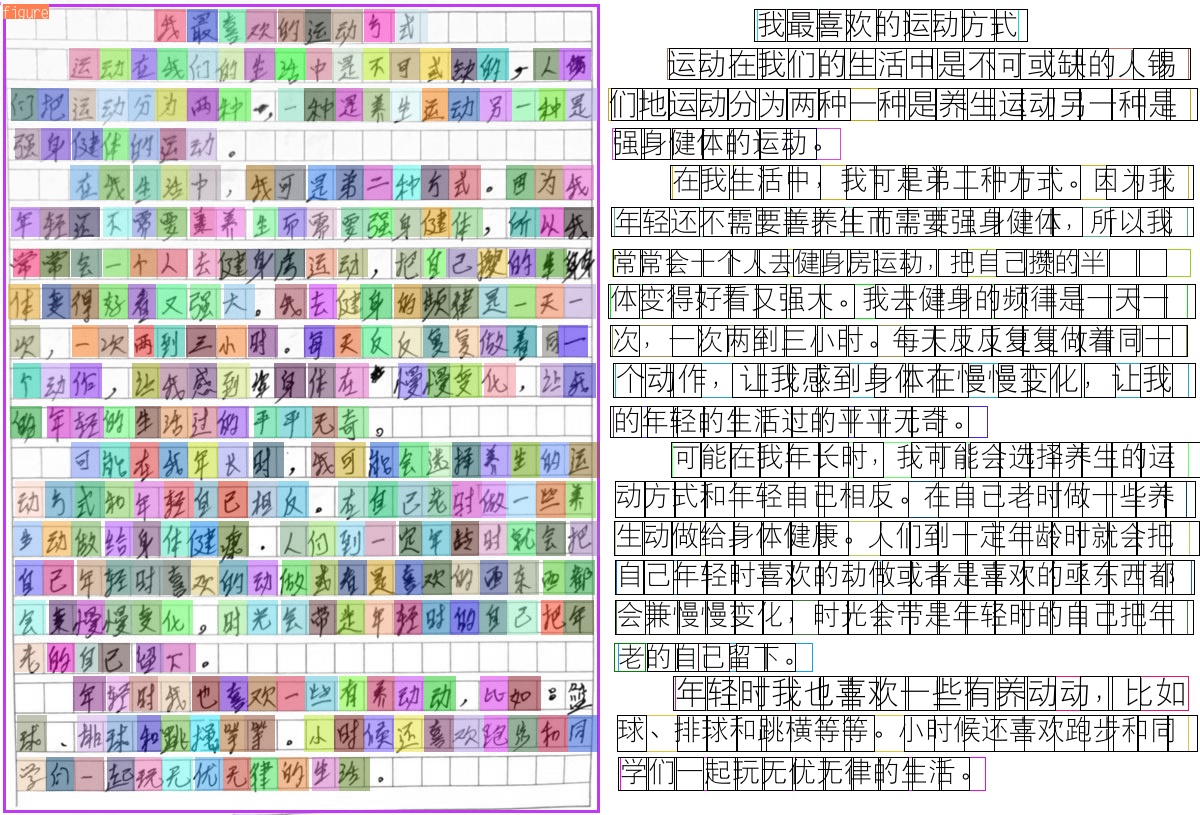 figure
我最喜欢的运动方式
运动在我们的生活中是不可或缺的，人
们把运动分为两种，一种是养生运动另一种是
强身健体的运动。
在我生活中，我可是第二种方式。因为我
年轻还不需要养生而需要强身健体，所以我
常常会一个人去健身房运动，把自己的身
体变得好看又强大。我去健身的频律是一天一
次，一次两到三小时。每天反反复复做着同一
个动作，让我感到身体在慢慢变化，让我
的年轻的生活过的平平无奇。
可能在我年长时，我可能会选择养生的运
动方式和年轻自己相反。在自己老时做一些养
生动做给身体健康。人们到一定年龄时就会把
自己年轻时喜欢的动做或者是喜欢的西东西都
会慢慢变化。时光会带走年轻时的自己把年
老的自己留下。
年轻时我也喜欢一些有养动动，比如：篮
球、排球和跳绳等等。小时候还喜欢跑步和同
学们一起玩无忧无律的生活。
我最喜欢的运动方式
运动在我们的生活中是不可或缺的人锡
们地运动分为两种一种是养生运动另一种是
强身健体的运动。
在我生活中，我可是第二种方式。因为我
年轻还不需要善养生而需要强身健体，所以我
常常会一个人去健身房运动，把自己攒的半
体变得好看又强大。我去健身的频律是一天一
次，一次两到三小时。每天反反复复做着同一
个动作，让我感到身体在慢慢变化，让我
的年轻的生活过的平平无奇。
可能在我年长时，我可能会选择养生的运
动方式和年轻自己相反。在自己老时做一些养
生动做给身体健康。人们到一定年龄时就会把
自己年轻时喜欢的动做或者是喜欢的亟东西都
会兼慢慢变化，时光会带是年轻时的自己把年
老的自己留下。
年轻时我也喜欢一些有养动动，比如
球、排球和跳横等等。小时候还喜欢跑步和同
学们一起玩无优无律的生活。